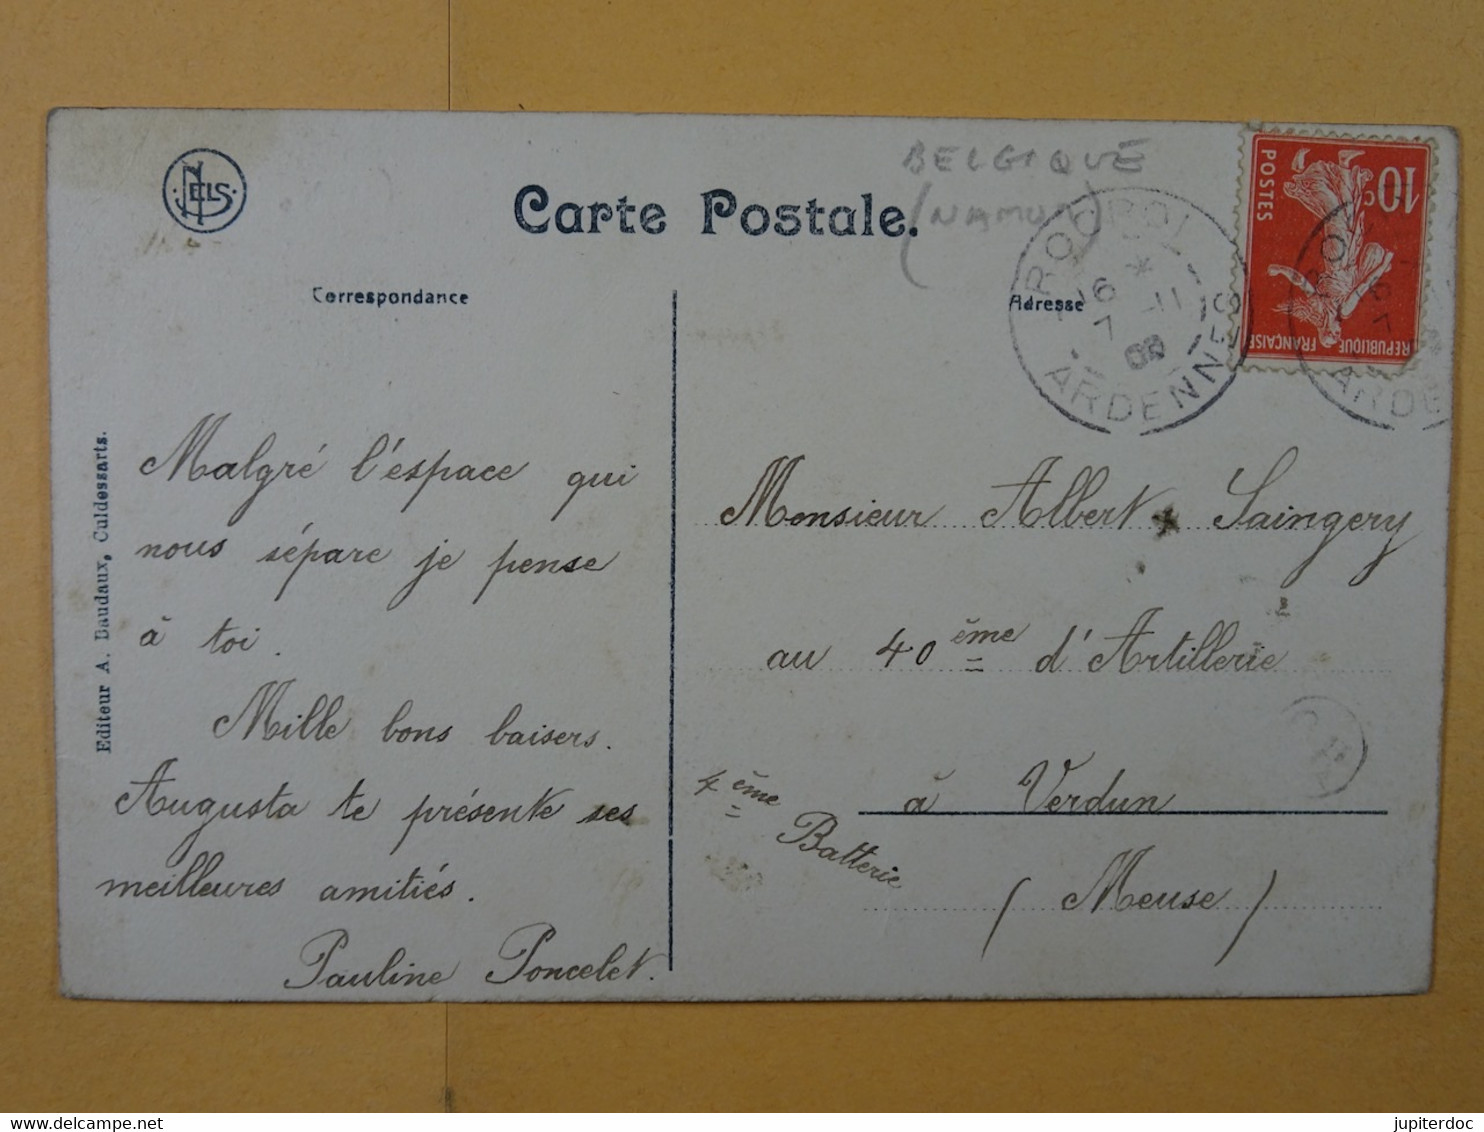 NELS
Carte Postale.
BELGIQUE
(NAMUR)
Correspondance
Adresse
ROCROI
16 *
7 -11
ARDENNES
POSTES
10c
REPUBLIQUE FRANÇAISE
Malgré l'espace qui
nous sépare je pense
à toi.
Mille bons baisers.
Augusta te présente ses
meilleures amitiés.
Pauline Poncelet.
Monsieur Albert Saingery
au 40ème d'Artillerie
à Verdun
4ème Batterie
(Meuse)
Editeur A. Baudaux, Culdessarts.
jupiterdoc